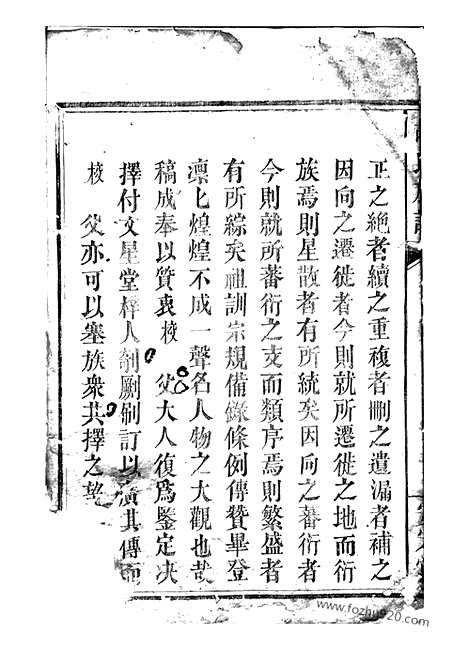 正之絶者續之重複者刪之遺漏者補之
因向之遷徙者今則就所遷徙之地而衍
族焉則星散者有所統矣因向之蕃衍者
今則就所蕃衍之支而類序焉則繁盛者
有所綜矣祖訓宗規備錄條例傳贊畢登
凛匕煌煌不成一聲名人物之大觀也哉
稿成奉以質衷校父大人復爲鑒定决
擇付文星堂梓人剞劂刷訂以廣其傳而
校父亦可以塞族衆共擇之望
www.fozhu920.com